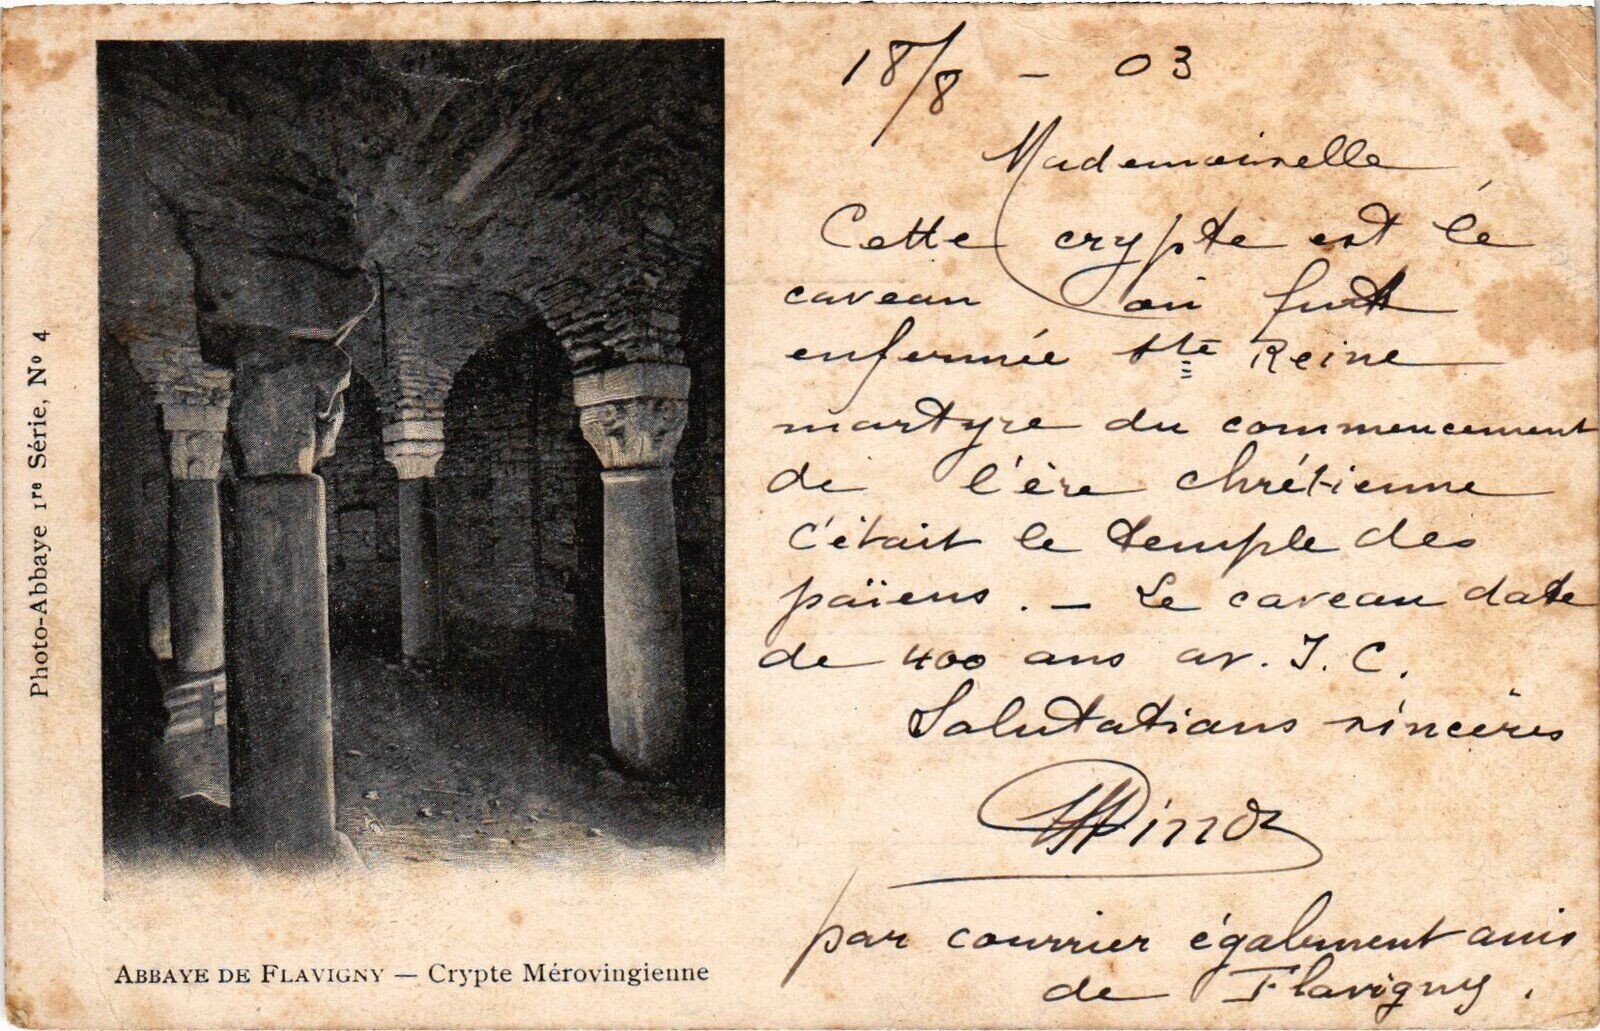 Photo-Abbaye 1re Série, No 4
ABBAYE DE FLAVIGNY — Crypte Mérovingienne
18/8 - 03
Mademoiselle
Cette crypte est lé
caveau où fut
enfermée Ste Reine
martyre du commencement
de l'ère chrétienne
C'était le temple des
païens. — Le caveau date
de 400 ans av. J. C.
Salutations sincères
par courrier également
de Flavigny.